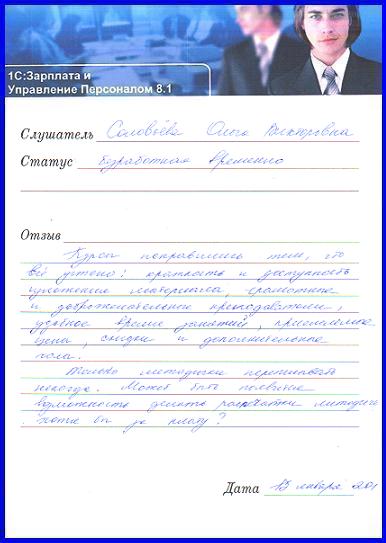 1С:Зарплата и
Управление Персоналом 8.1
Слушатель Соловьёва Ольга Викторовна
Статус безработная временно
Отзыв
Курсы понравились тем, что
всё учтено: краткость и доступность
изложения материала, грамотные
и доброжелательные преподаватели,
удобное время занятий, приемлемые
цены, скидки и дополнительные
часы.
Только методички переписывать
некогда. Может быть появится
возможность делать распечатки методичек
хотя бы за плату?
Дата 15 января 201